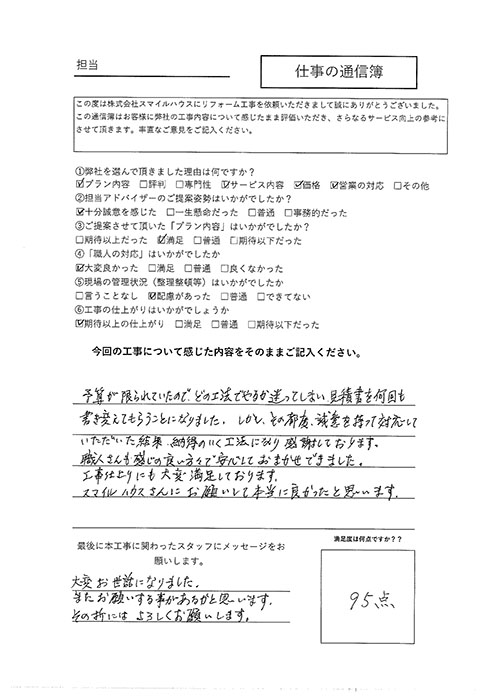 担当
仕事の通信簿
この度は株式会社スマイルハウスにリフォーム工事を依頼いただきまして誠にありがとうございました。
この通信簿はお客様に弊社の工事内容について感じたまま評価いただき、さらなるサービス向上の参考に
させて頂きます。率直なご意見をご記入ください。
①弊社を選んで頂きました理由は何ですか？
☑プラン内容 □評判 □専門性 ☑サービス内容 ☑価格 ☑営業の対応 □その他
②担当アドバイザーのご提案姿勢はいかがでしたか？
☑十分誠意を感じた □一生懸命だった □普通 □事務的だった
③ご提案させて頂いた『プラン内容』はいかがでしたか？
□期待以上だった ☑満足 □普通 □期待以下だった
④「職人の対応」はいかがでしたか
☑大変良かった □満足 □普通 □良くなかった
⑤現場の管理状況（整理整頓等）はいかがでしたか？
□言うことなし ☑配慮があった □普通 □できてない
⑥工事の仕上がりはいかがでしょうか
☑期待以上の仕上がり □満足 □普通 □期待以下だった
今回の工事について感じた内容をそのままご記入ください。
予算が限られていたので、どの工法でやるか迷ってしまい見積書を何回も
書き変えてもらうことになりました。しかし、その都度、誠意を持って対応して
いただいた結果、納得のいく工法になり感謝しております。
職人さんも感じの良い方々で安心しておまかせできました。
工事仕上りにも大変満足しております。
スマイルハウスさんにお願いして本当に良かったと思います。
最後に本工事に関わったスタッフにメッセージをお
願いします。
大変お世話になりました。
またお願いする事があるかと思います。
その折にはよろしくお願いします。
満足度は何点ですか？？
95点